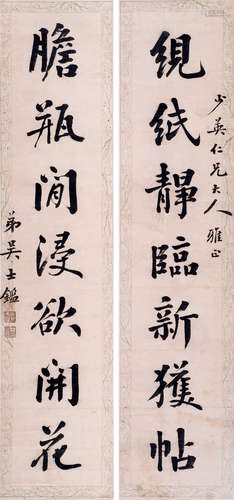 少英仁兄大人雅正
絸紙靜臨新獲帖
膽瓶閒浸欲開花
弟吳士鑑